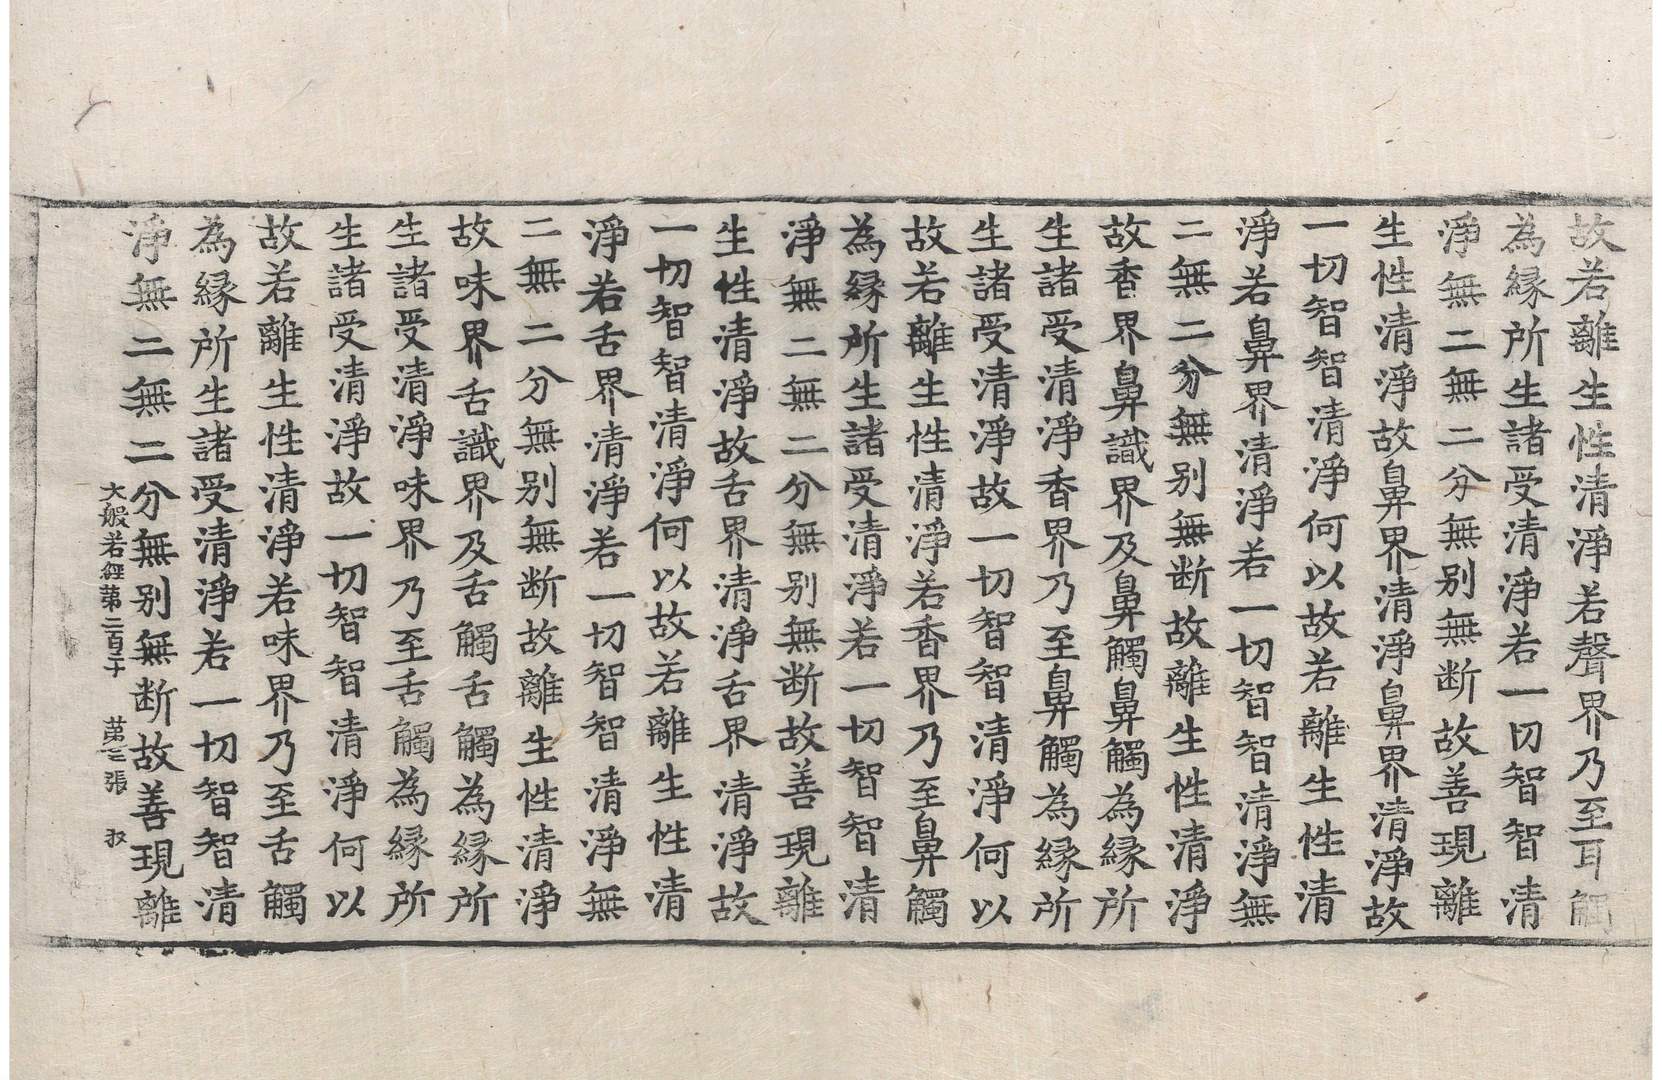 故若離生性清淨若聲界乃至耳觸
為縁所生諸受清淨若一切智智清
淨無二無二分無别無断故善現離
生性清淨故鼻界清淨鼻界清淨故
一切智智清淨何以故若離生性清
淨若鼻界清淨若一切智智清淨無
二無二分無别無断故離生性清淨
故香界鼻識界及鼻觸鼻觸為縁所
生諸受清淨香界乃至鼻觸為縁所
生諸受清淨故一切智智清淨何以
故若離生性清淨若香界乃至鼻觸
為縁所生諸受清淨若一切智智清
淨無二無二分無别無断故善現離
生性清淨故舌界清淨舌界清淨故
一切智智清淨何以故若離生性清
淨若舌界清淨若一切智智清淨無
二無二分無别無断故離生性清淨
故味界舌識界及舌觸舌觸為縁所
生諸受清淨味界乃至舌觸為縁所
生諸受清淨故一切智智清淨何以
故若離生性清淨若味界乃至舌觸
為縁所生諸受清淨若一切智智清
淨無二無二分無别無断故善現離
大般若經第二百 第 張